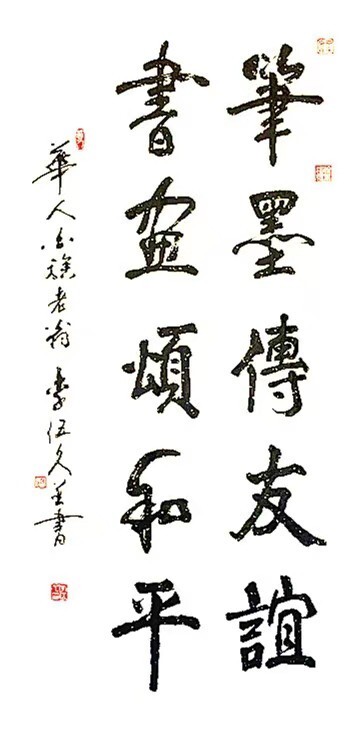 筆墨傳友誼
書畫頌和平
華人白族老翁李伍久書